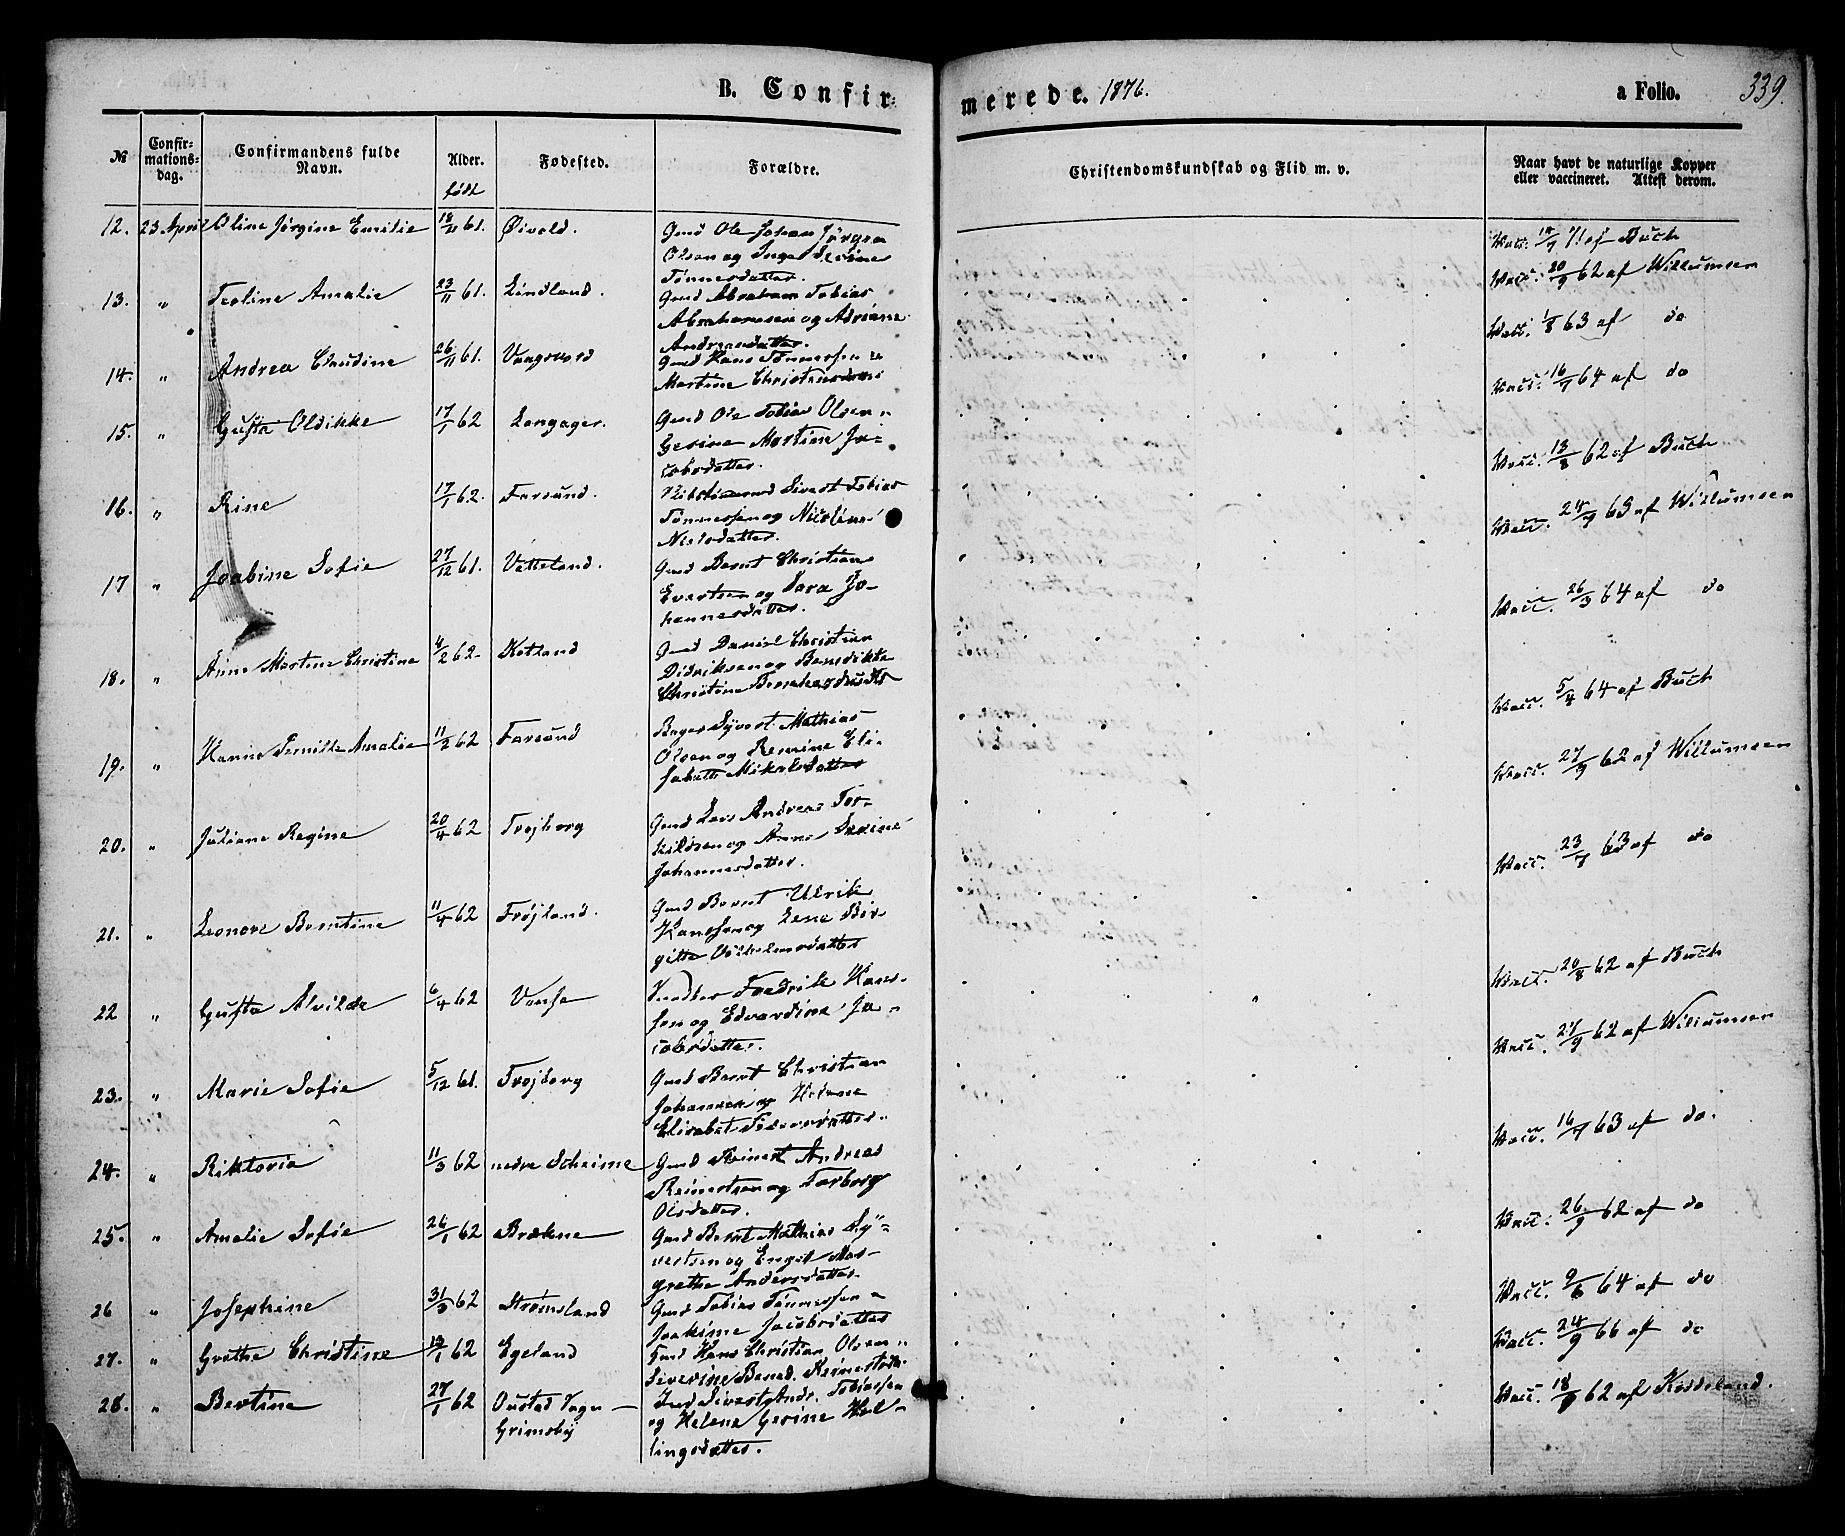 B. Confir-
merede. 1876.
a Folio. 339.
№
Confir-
mations-
dag.
Confirmandens fulde
Navn.
Alder.
født
Fødested.
Forældre.
Christendomskundskab og Flid m. v.
Naar havt de naturlige Kopper
eller vaccineret. Attest derom.
12. 23 April Oline Jørgine Emilie 18/11 61. Øivold. Gmd Ole Johan Jørgen
Olsen og Inger Serine
Tønnesdatter.
Vacc. 14/7 71 af Buch
13. " Teoline Amalie 23/11 61. Lindland. Gmd Abraham Tobias
Abrahamsen og Adriane
Andreasdatter.
Vacc. 20/9 62 af Willumsen
14. " Andrea Claudine 26/11 61. Gmd Hans Tønnessen og
Martine Christensdatter
Vacc. 1/8 63 af do
15. " Gusta Oldikke 17/1 62 Langager. Gmd Ole Tobias Olsen "
Gerine Martine Ja-
cobsdatter.
Vacc. 16/7 64 af do
16. " Rine 17/1 62. Farsund. Sivert Tobias
Tønnessen og Nicoline
Nielsdatter.
Vacc. 13/8 62 af Buch
17 " Joabine Sofie 27/12 61. Vatteland. Gmd Bernt Christian
Evertsen og Sara Jo-
hannesdatter.
Vacc. 24/7 63 af Willumsen
18. " Anne Martine Christine 4/2 62. Ketland Gmd Daniel Christian
Didriksen og Benedikte
Christine
Vacc. 26/3 64 af do
19. " Hanne Pernille Amalie 11/2 62 Farsund Sivert Mathias
Olsen og Remine Eli-
sabeth Mikalsdatter
Vacc. 5/4 64 af Buch
20. " Juliane Regine 20/4 62 Frøjborg Gmd Lars Andreas Tor-
kildsen og Anne Serine
Johannesdatter.
Vacc. 27/9 62 af Willumsen
21. " Leonore Berntine 11/4 62 Frøjland. Gmd Bernt Ulrik
Hanssen og Lene Bir-
gitte Vilhelmsdatter
Vacc. 23/7 63 af do
22 " Gusta Alvilde 6/4 62 Vanse Fredrik Hans-
sen og Edvardine Ja-
cobsdatter.
Vacc. 20/8 62 af Buch
23. " Marie Sofie 5/12 61. Frøjborg Gmd Bernt Christian
Johannesen og Helene
Elisabet Pedersdatter.
Vacc. 27/9 62 af Willumsen
24. " Riktoria 11/3 62 nedre Scheime Gmd Reinert Andreas
Reinertsen og Torborg
Olsdatter.
Vacc. 16/7 63 af do.
25. " Amalie Sofie 26/1 62 Brækne Gmd Bernt Mathias Sy-
vertsen og Engel Mar-
grethe Andersdatter
Vacc. 26/9 62 af do
26 " Josephine 31/3 62 Strømsland Gmd Tobias Tønnessen og
Joakime Jacobsdatter
Vacc. 9/6 64 af do
27. " Grethe Christine 13/1 62 Egeland Gmd Hans Christian Olsen "
Severine Bened. Reinertsdtr.
Vacc. 24/9 66 af do
28. " Bertine 27/1 62 Oustad Vogn -
Grimsby
Sivert Andr. Tobiassen
og Helene Gerine Hel-
lingsdatter.
Vacc. 18/9 62 af Keddeland.